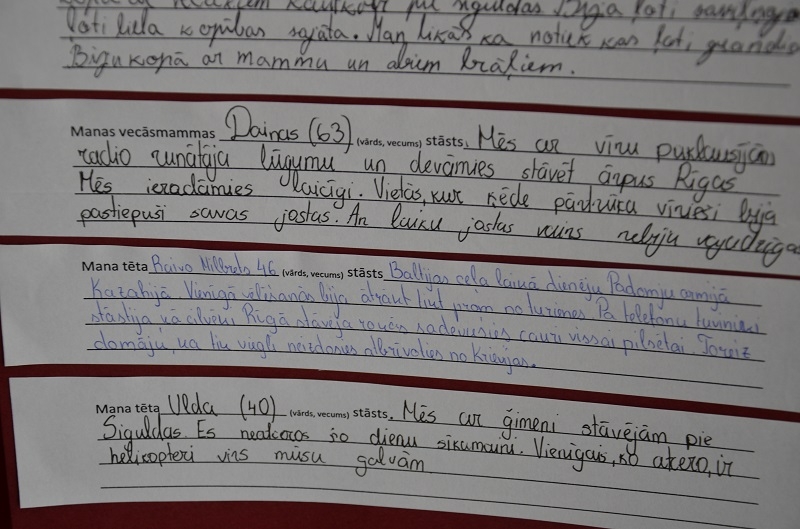 kautkur pie Siguldas. Bija ļoti
ļoti liela kopības sajūta. Man likās ka notiek kas ļoti
Biju kopā ar mammu un abiem brāļiem.
Manas vecāsmammas Dainas (63) (vārds, vecums) stāsts. Mēs ar vīru puklausījām
radio runātāja lūgumu un devāmies stāvēt ārpus Rīgas
Mēs ieradāmies laicīgi. Vietās, kur ķēde pārtrūka vīrieši bija
pastiepuši savas jostas. Ar laiku jostas vairs nebija
Mana tēta Raivo 46 (vārds, vecums) stāsts Baltijas ceļa laikā dienēju Padomju armijā
Kazahijā. Vienīgā vēlēšanās bija ātrāk tikt prom no turienes. Pa telefonu tuvinieki
stāstīja kā cilvēki Rīgā stāvēja rokās sadevušies cauri visai pilsētai. Toreiz
domāju, ka tik viegli neizdosies atbrīvoties no Krievijas.
Mana tēta Ulda (40) (vārds, vecums) stāsts. Mēs ar ģimeni stāvējām pie
Siguldas. Es neatceros šo dienu sīkumaini. Vienīgais, ko atcero, ir
helikopteri virs mūsu galvām